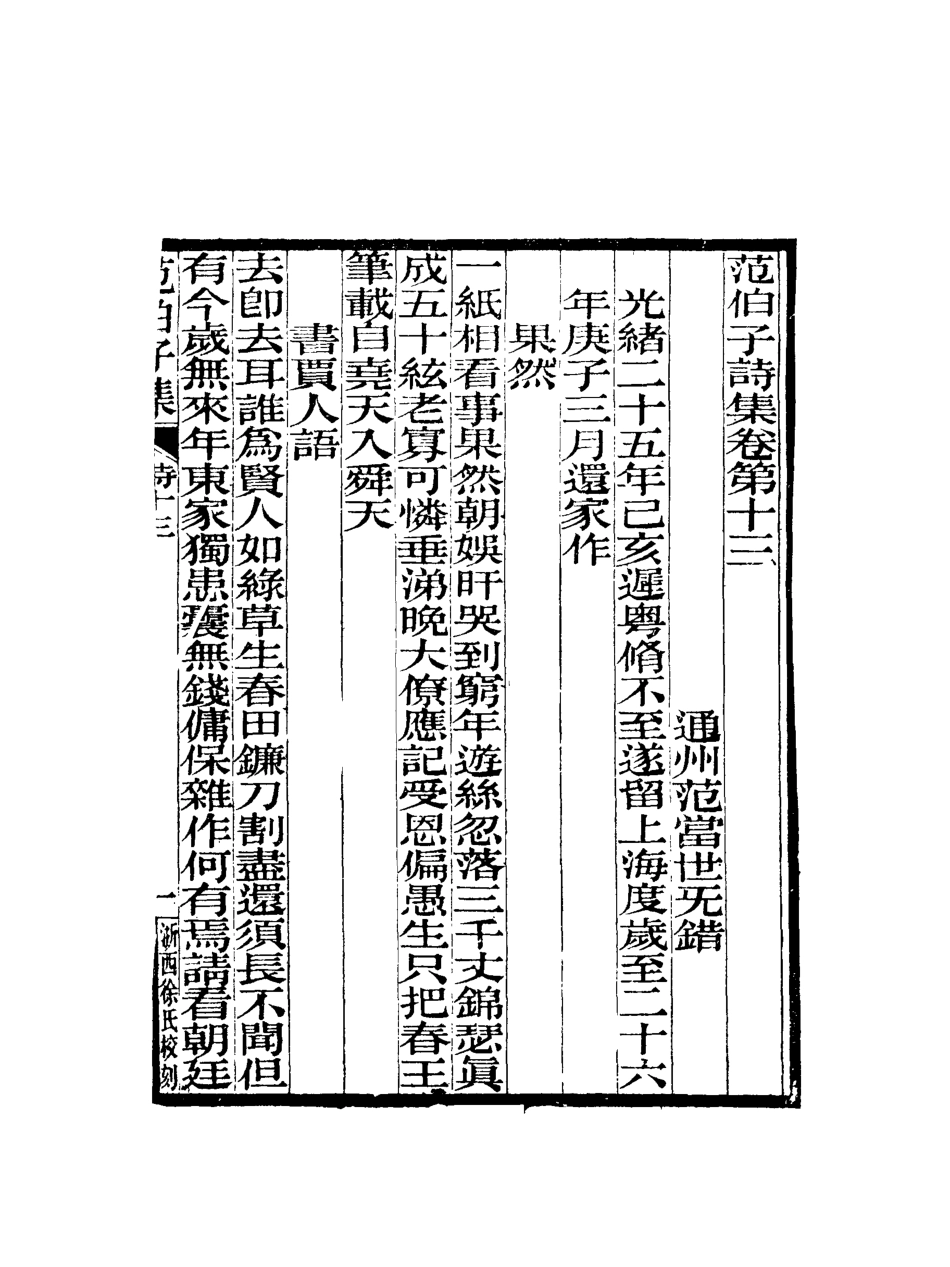 范伯子詩集卷第十三
通州范當世无錯
光緒二十五年己亥遲粤脩不至遂留上海度歲至二十六
年庚子三月還家作
果然
一紙相看事果然朝娛旰哭到窮年遊絲忽落三千丈錦瑟眞
成五十絃老寡可憐垂涕晚大僚應記受恩偏愚生只把春王
筆載自堯天入舜天
書賈人語
去卽去耳誰爲賢人如綠草生春田鐮刀割盡還須長不聞但
有今歲無來年東家獨患囊無錢傭保雜作何有焉請看朝廷
范伯子集
詩十三
一
浙西徐氏校刻